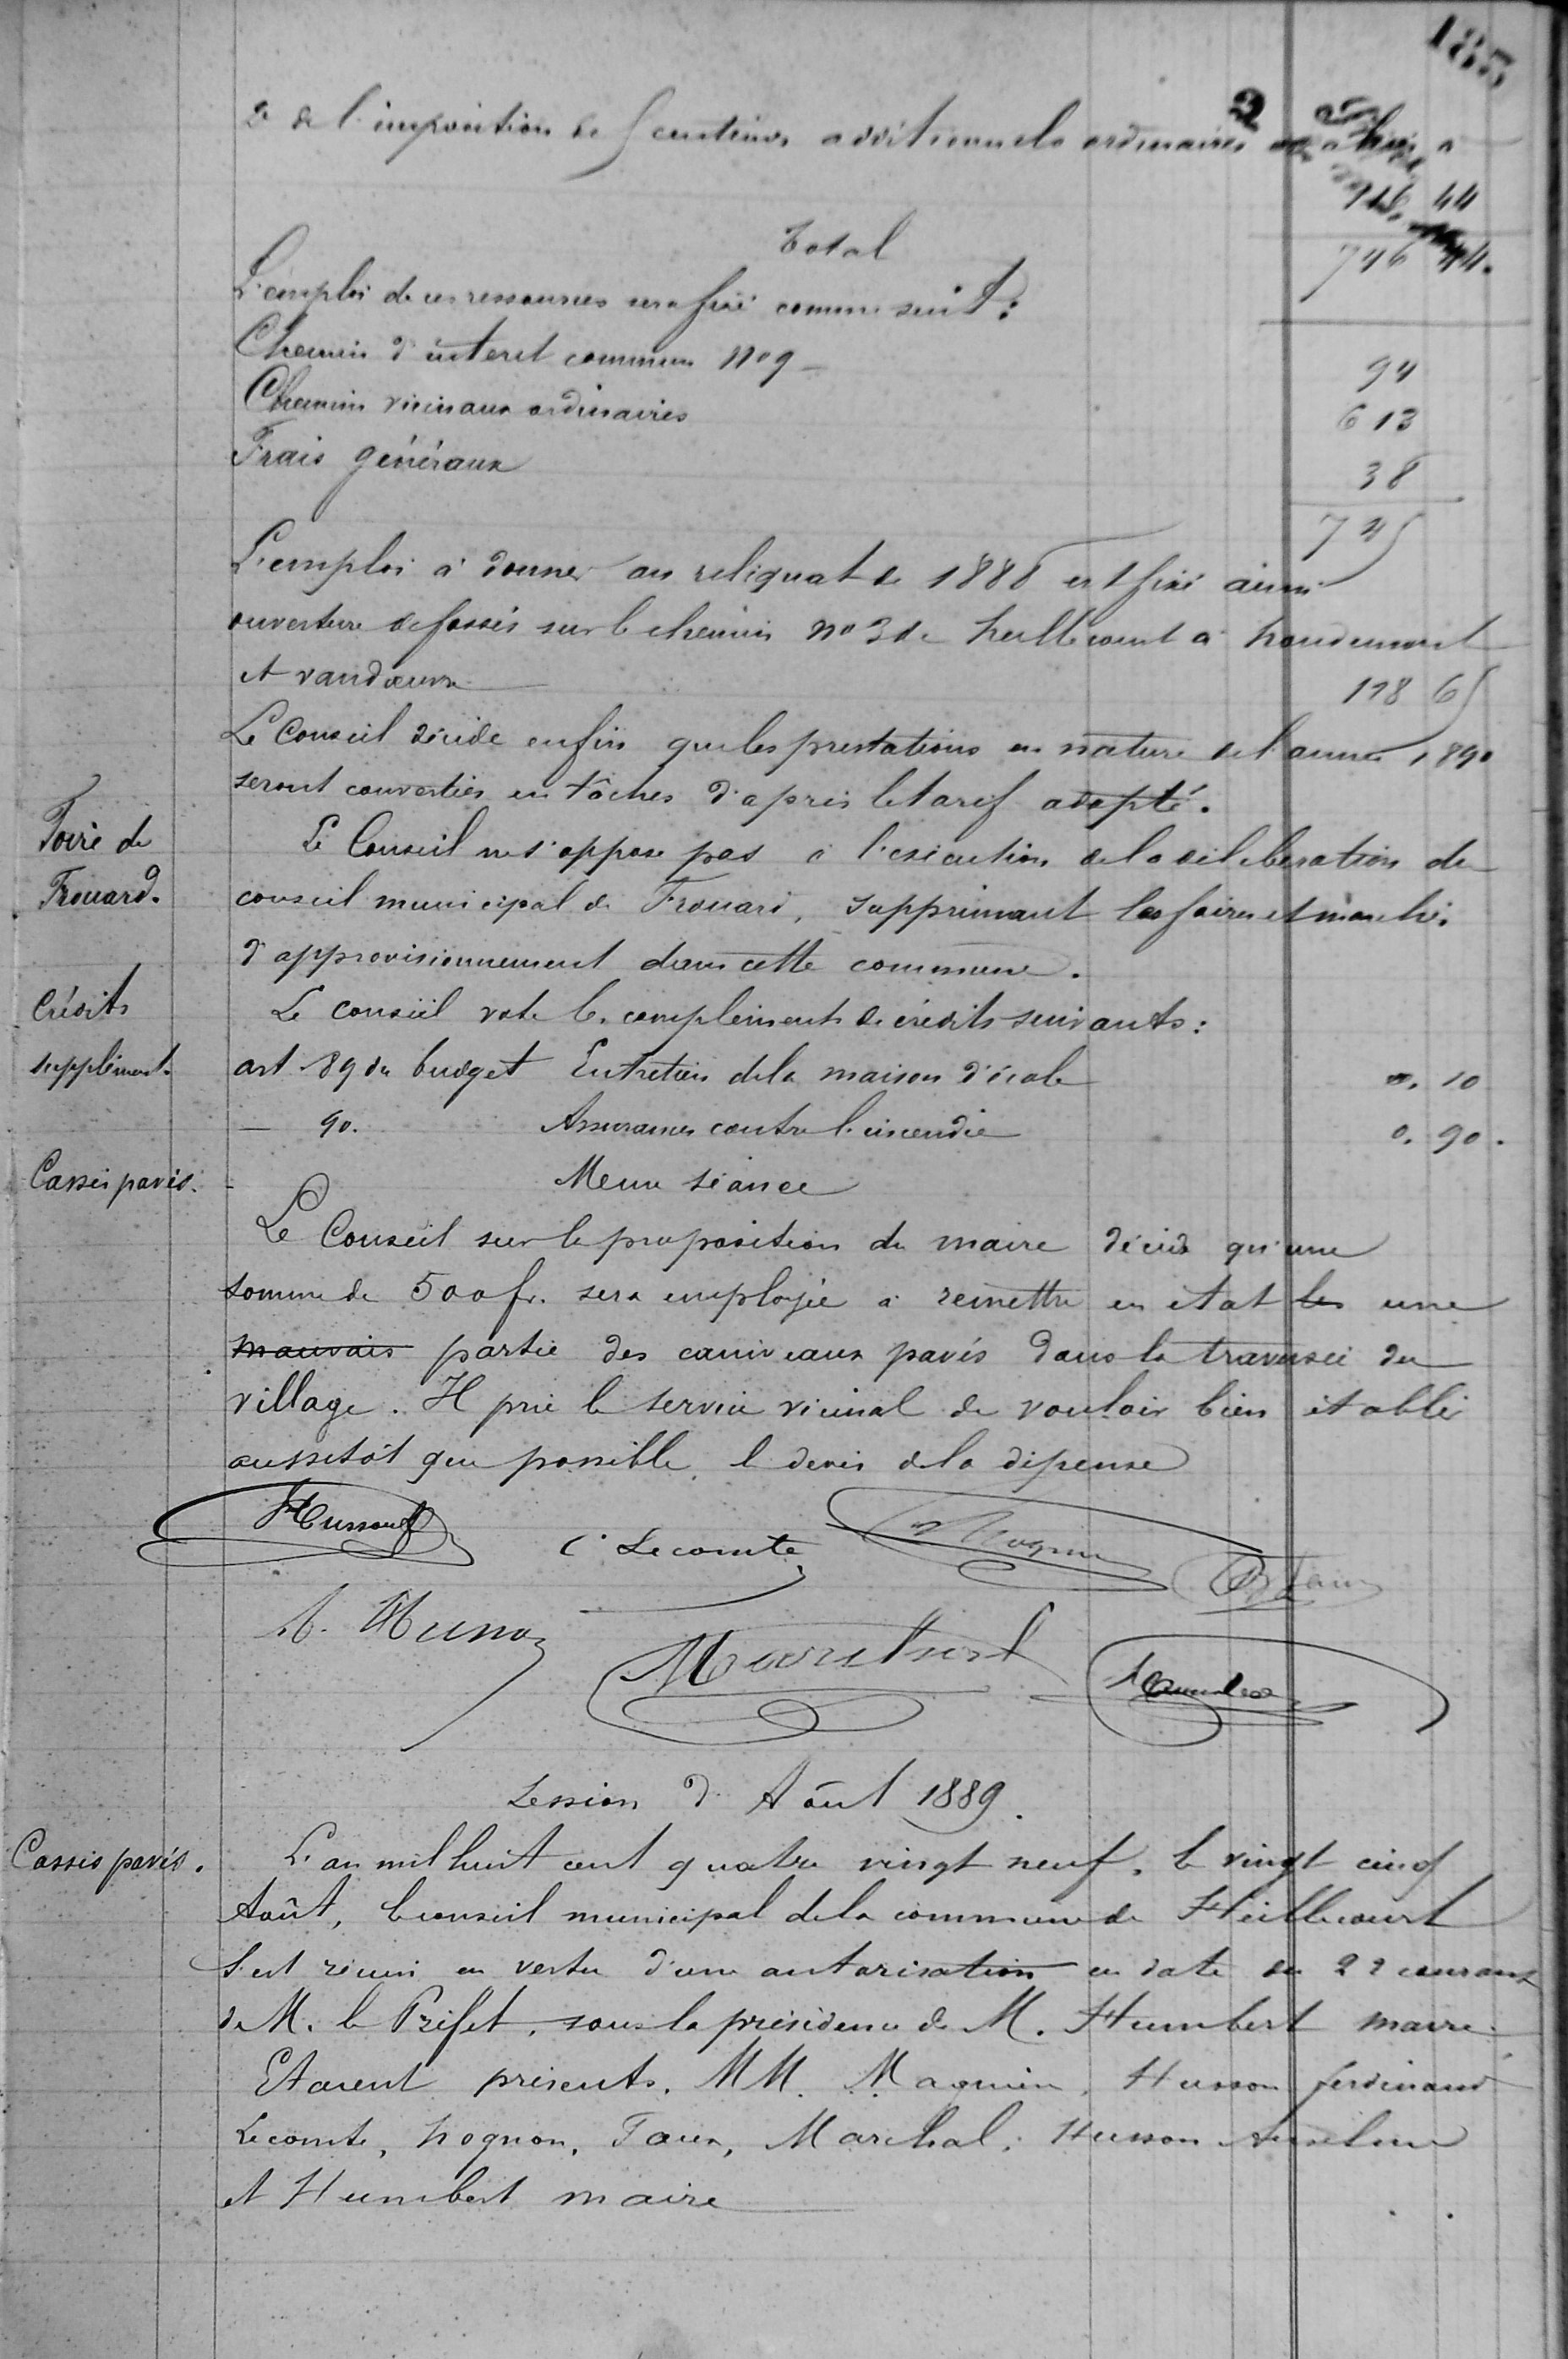 185
2° de l'imposition de 5 centimes additionnels ordinaires
44
Total 746 44.
L'emploi de ces ressources sera fixé comme suit :
Chemin d'interet commun N° 9 — 94
Chemins vicinaux ordinaires 613
Frais généraux 38
745
L'emploi à donner au reliquat de 1888 est fixé ainsi
ouverture de fossés sur le chemin N° 3 de heillecourt à houdemont
et vandœuvre 118 65
Le Conseil décide enfin que les prestations en nature de l'année 1890
seront converties en tâches d'après le tarif adopté.
Foire de
Frouard.
Le Conseil ne s'oppose pas à l'exécution de la délibération du
conseil municipal de Frouard, supprimant les foires et marchés
d'approvisionnement dans cette commune.
Crédits
supplément.
Le conseil vote les compléments de crédits suivants :
art 89 du budget Entretien de la maison d'école 0. 10
— 90. Assurances contre l'incendie 0. 90.
Cassis pavés. - Meme séance
Le Conseil sur la proposition du maire décide qu'une
somme de 500 fr. sera employée à remettre en état les une
mauvais partie des caniveaux pavés dans la traversée du
village. Il prie le service vicinal de vouloir bien établir
aussitôt que possible, le devis de la dépense
Husson f
C. Lecomte
Magnin
A. Husson
Humbert
Session d'Août 1889.
Cassis pavés. L'an mil huit cent quatre vingt neuf, le vingt cinq
Août, le conseil municipal de la commune de Heillecourt
s'est réuni en vertu d'une autorisation en date du 22 courant
de M. le Préfet, sous la présidence de M. Humbert maire.
Etaient présents, MM. Magnin, Husson ferdinand
Lecomte, hognon, Marchal, Husson Anselme
et Humbert maire